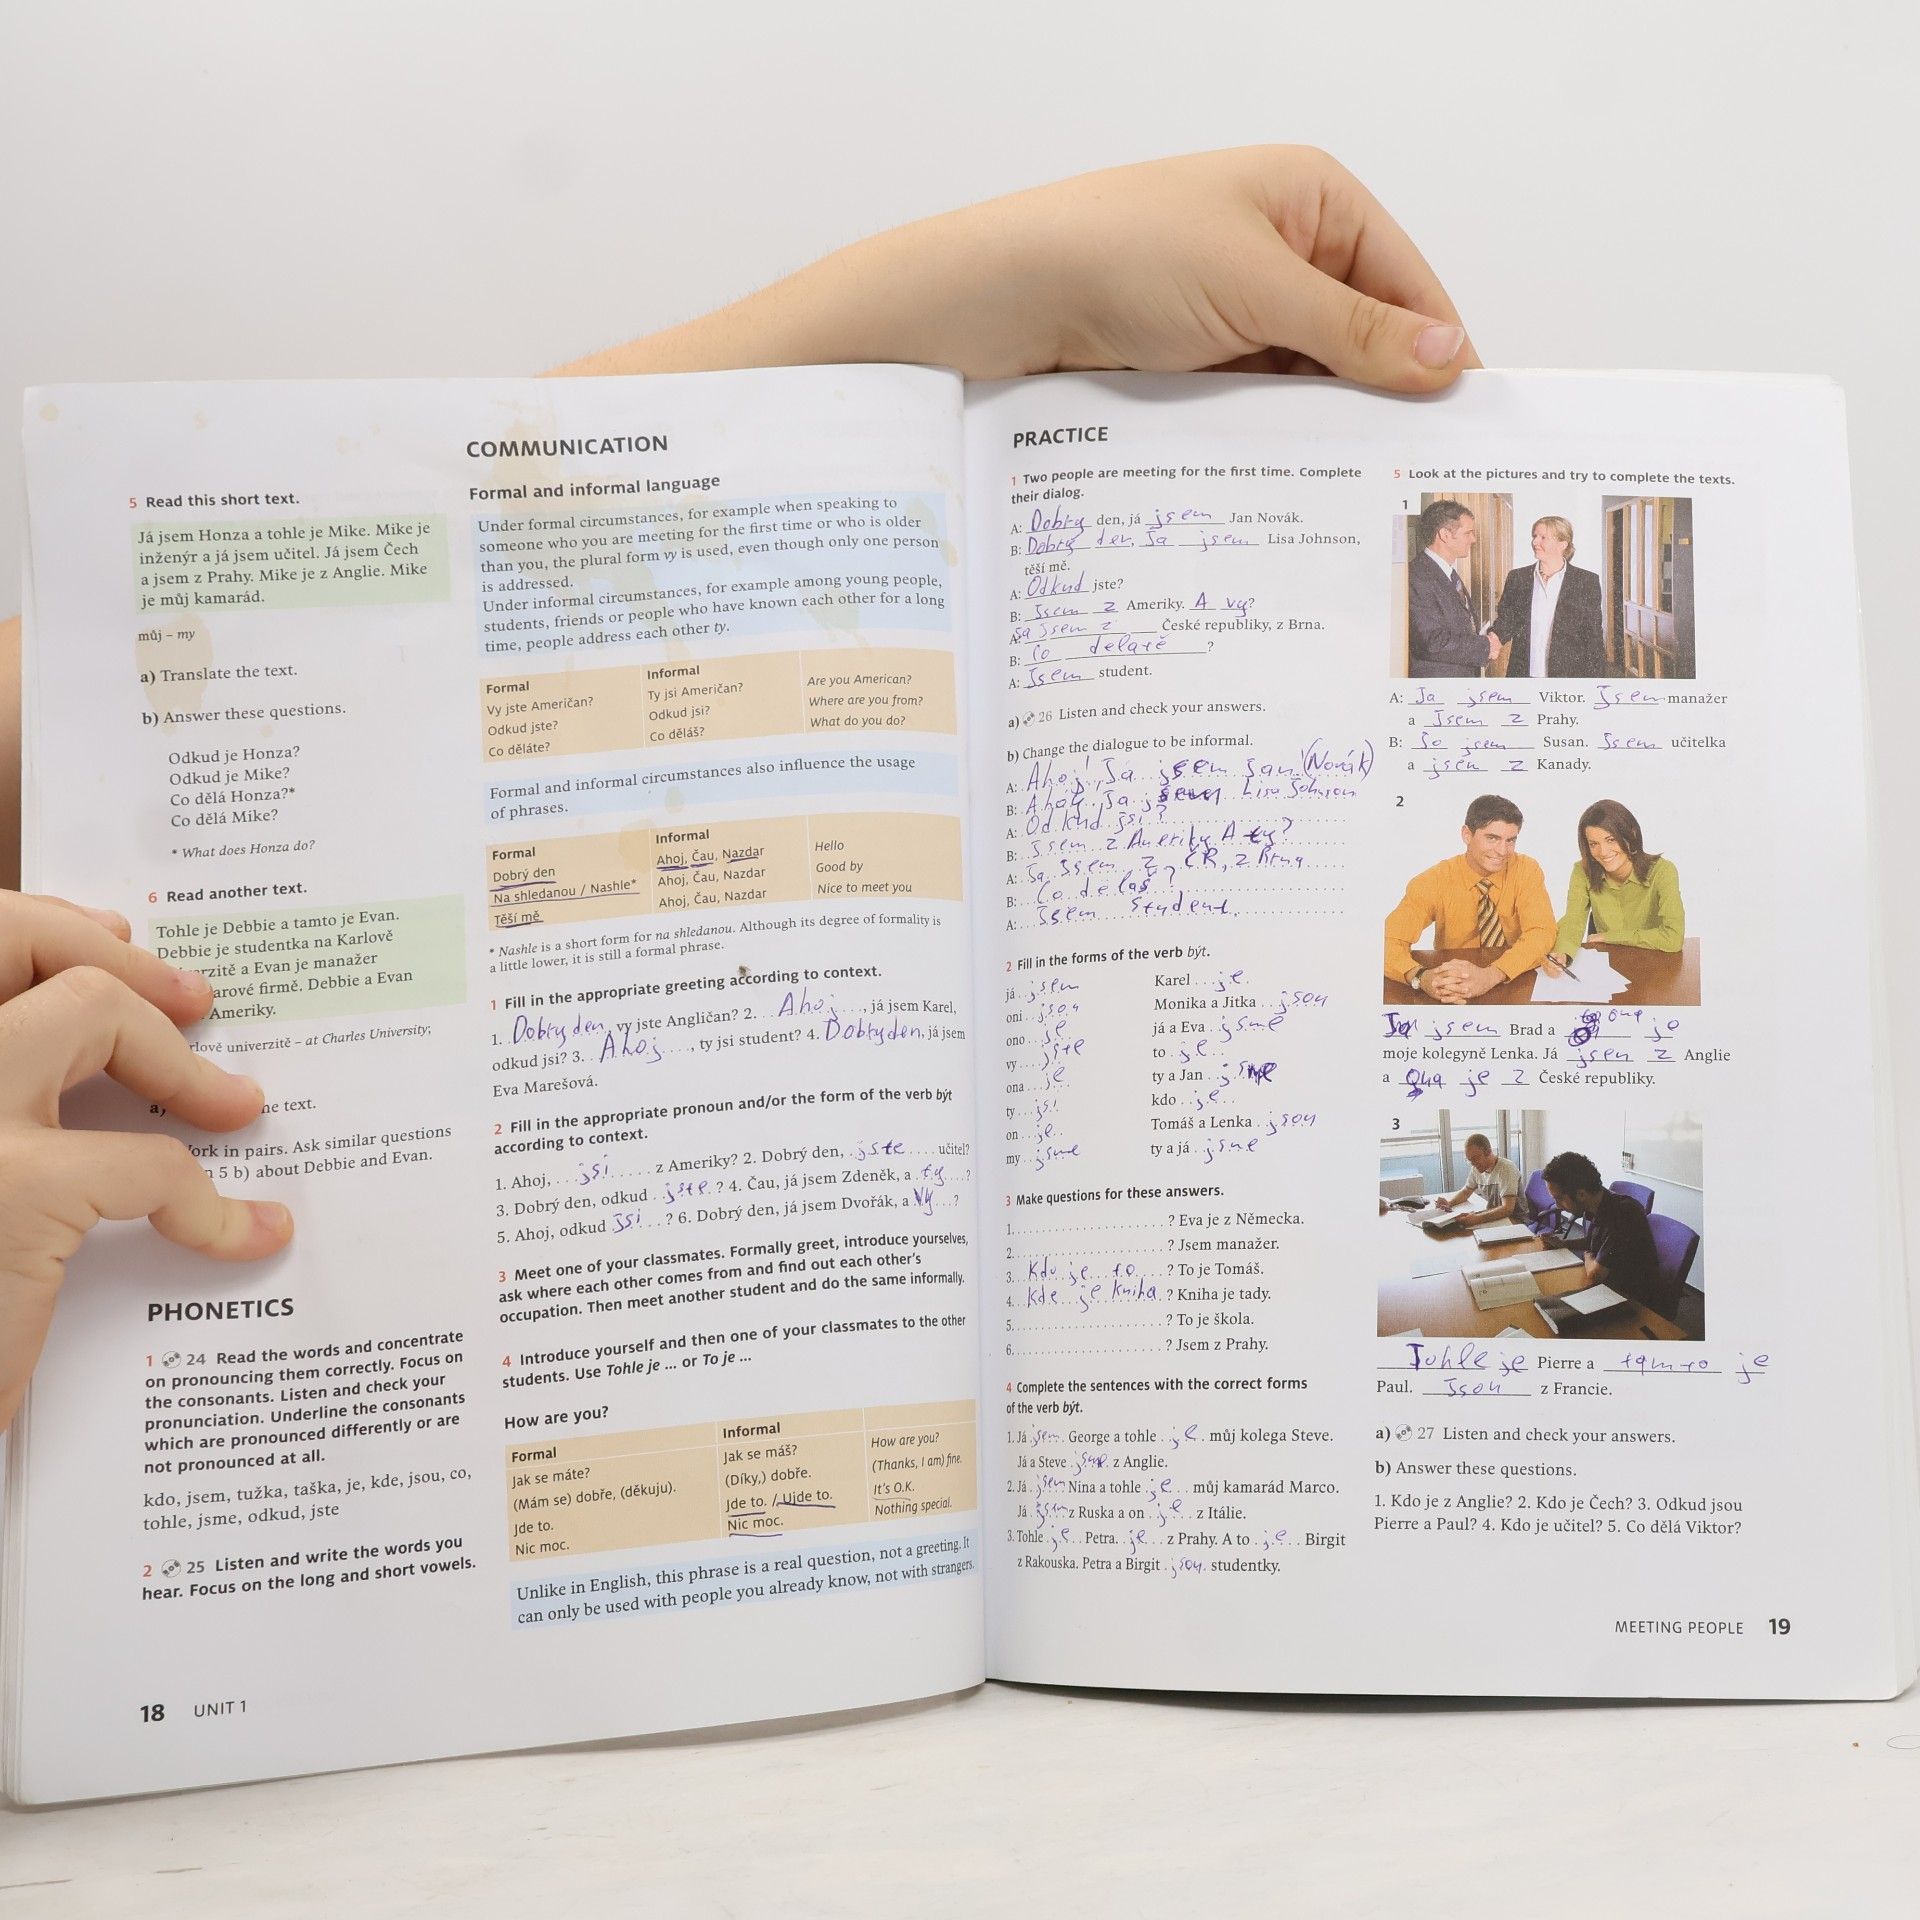 5 Read this short text.
Já jsem Honza a tohle je Mike. Mike je
inženýr a já jsem učitel. Já jsem Čech
a jsem z Prahy. Mike je z Anglie. Mike
je můj kamarád.
můj – my
a) Translate the text.
b) Answer these questions.
Odkud je Honza?
Odkud je Mike?
Co dělá Honza?*
Co dělá Mike?
* What does Honza do?
6 Read another text.
Tohle je Debbie a tamto je Evan.
Debbie je studentka na Karlově
rzitě a Evan je manažer
arové firmě. Debbie a Evan
Ameriky.
rlově univerzitě – at Charles University;
a) he text.
ork in pairs. Ask similar questions
n 5 b) about Debbie and Evan.
PHONETICS
1 24 Read the words and concentrate
on pronouncing them correctly. Focus on
the consonants. Listen and check your
pronunciation. Underline the consonants
which are pronounced differently or are
not pronounced at all.
kdo, jsem, tužka, taška, je, kde, jsou, co,
tohle, jsme, odkud, jste
2 25 Listen and write the words you
hear. Focus on the long and short vowels.
18 UNIT 1
COMMUNICATION
Formal and informal language
Under formal circumstances, for example when speaking to
someone who you are meeting for the first time or who is older
than you, the plural form vy is used, even though only one person
is addressed.
Under informal circumstances, for example among young people,
students, friends or people who have known each other for a long
time, people address each other ty.
Formal Informal
Vy jste Američan? Ty jsi Američan? Are you American?
Odkud jste? Odkud jsi? Where are you from?
Co děláte? Co děláš? What do you do?
Formal and informal circumstances also influence the usage
of phrases.
Formal Informal
Dobrý den Ahoj, Čau, Nazdar Hello
Na shledanou / Nashle* Ahoj, Čau, Nazdar Good by
Těší mě. Ahoj, Čau, Nazdar Nice to meet you
* Nashle is a short form for na shledanou. Although its degree of formality is
a little lower, it is still a formal phrase.
1 Fill in the appropriate greeting according to context.
1. Dobry den, vy jste Angličan? 2. . Ahoj . . ., já jsem Karel,
odkud jsi? 3. . Ahoj . . . ., ty jsi student? 4. Dobry den, já jsem
Eva Marešová.
2 Fill in the appropriate pronoun and/or the form of the verb být
according to context.
1. Ahoj, . . . jsi . . . . . z Ameriky? 2. Dobrý den, . jste . . . . učitel?
3. Dobrý den, odkud . . jste . ? 4. Čau, já jsem Zdeněk, a . ty . . . ?
5. Ahoj, odkud jsi . . . ? 6. Dobrý den, já jsem Dvořák, a vy . . . ?
3 Meet one of your classmates. Formally greet, introduce yourselves,
ask where each other comes from and find out each other's
occupation. Then meet another student and do the same informally.
4 Introduce yourself and then one of your classmates to the other
students. Use Tohle je ... or To je ...
How are you?
Formal Informal
Jak se máte? Jak se máš? How are you?
(Mám se) dobře, (děkuju). (Díky,) dobře. (Thanks, I am) fine.
Jde to. Jde to. / Ujde to. It's O.K.
Nic moc. Nic moc. Nothing special.
Unlike in English, this phrase is a real question, not a greeting. It
can only be used with people you already know, not with strangers.
PRACTICE
1 Two people are meeting for the first time. Complete
their dialog.
A: Dobry den, já jsem Jan Novák.
B: Dobry den, Ja jsem Lisa Johnson,
těší mě.
A: Odkud jste?
B: Jsem z Ameriky. A vy?
A: Ja jsem z České republiky, z Brna.
B: Co delatě ?
A: Jsem student.
a) 26 Listen and check your answers.
b) Change the dialogue to be informal.
A: Ahoj! Ja jsem Jan (Novák)
B: Ahoj, Ja jsem Lisa Johnson
A: Od kud jsi?
B: Jsem z Ameriky A ty?
A: Ja Jsem z ČR, z Brna
B: Co delaš?
A: Jsem student.
2 Fill in the forms of the verb být.
já . . jsem Karel . . . je .
oni . . jsou Monika a Jitka . . jsou
ono . . je já a Eva . . jsme
vy . . . jste to . je . .
ona . . . je ty a Jan . . jsme
ty . . . jsi kdo . . je . .
on . . . je . Tomáš a Lenka . . jsou
my . . jsme ty a já . . jsme
3 Make questions for these answers.
1. . . . . . . . . . . . . . . ? Eva je z Německa.
2. . . . . . . . . . . . . . . ? Jsem manažer.
3. . . Kdo je to . . . . ? To je Tomáš.
4. . . Kde je kniha . ? Kniha je tady.
5. . . . . . . . . . . . . . . ? To je škola.
6. . . . . . . . . . . . . . . ? Jsem z Prahy.
4 Complete the sentences with the correct forms
of the verb být.
1. Já jsem . George a tohle . . je . . můj kolega Steve.
Já a Steve jsme . z Anglie.
2. Já . jsem Nina a tohle . je . . . můj kamarád Marco.
Já . jsem . z Ruska a on . . je . . z Itálie.
3. Tohle . je . . Petra. . je . . . z Prahy. A to . . je . . Birgit
z Rakouska. Petra a Birgit . jsou . studentky.
5 Look at the pictures and try to complete the texts.
1
A: Ja jsem Viktor. Jsem manažer
a Jsem z Prahy.
B: Ja jsem Susan. Jsem učitelka
a jsem z Kanady.
2
Ja jsem Brad a ona je
moje kolegyně Lenka. Já jsem z Anglie
a Ona je z České republiky.
3
Tohle je Pierre a tamto je
Paul. Jsou z Francie.
a) 27 Listen and check your answers.
b) Answer these questions.
1. Kdo je z Anglie? 2. Kdo je Čech? 3. Odkud jsou
Pierre a Paul? 4. Kdo je učitel? 5. Co dělá Viktor?
MEETING PEOPLE 19